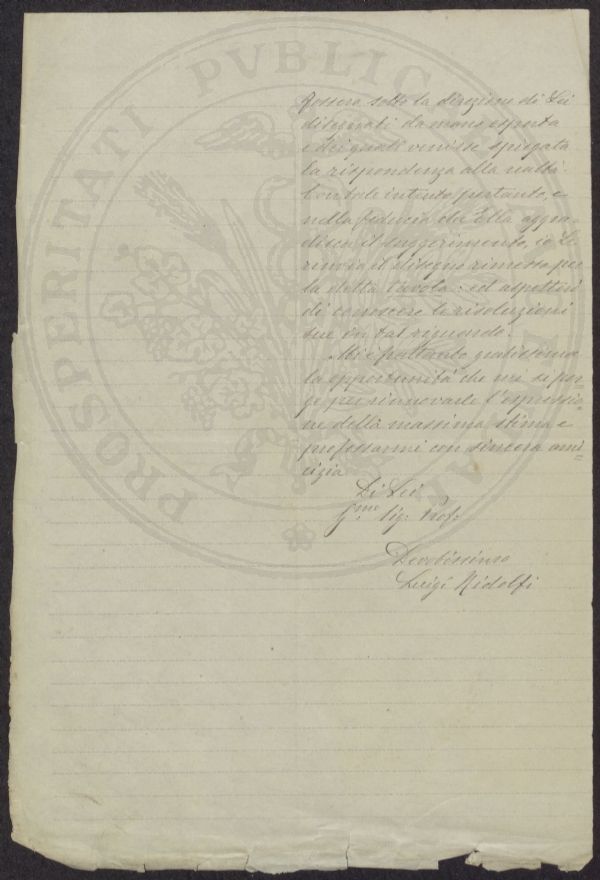 fossero sotto la direzione di Lei
disegnati da mano esperta
e dei quali venisse spiegata
la rispondenza alla realtà.
Con tale intento pertanto, e
nella fiducia che Ella aggra-
disca il suggerimento, io Le
rinvio il disegno rimesso per
la detta tavola: ed aspetterò
di conoscere le risoluzioni
sue in tal riguardo.
Mi è frattanto gratissima
la opportunità che mi si por-
ge per rinnovarle l'espressio-
ne della massima stima e
professarmi con sincera ami-
cizia
Di Lei
Sig: Prof:
Devotissimo
Luigi Ridolfi
PROSPERITATI PVBLICAE